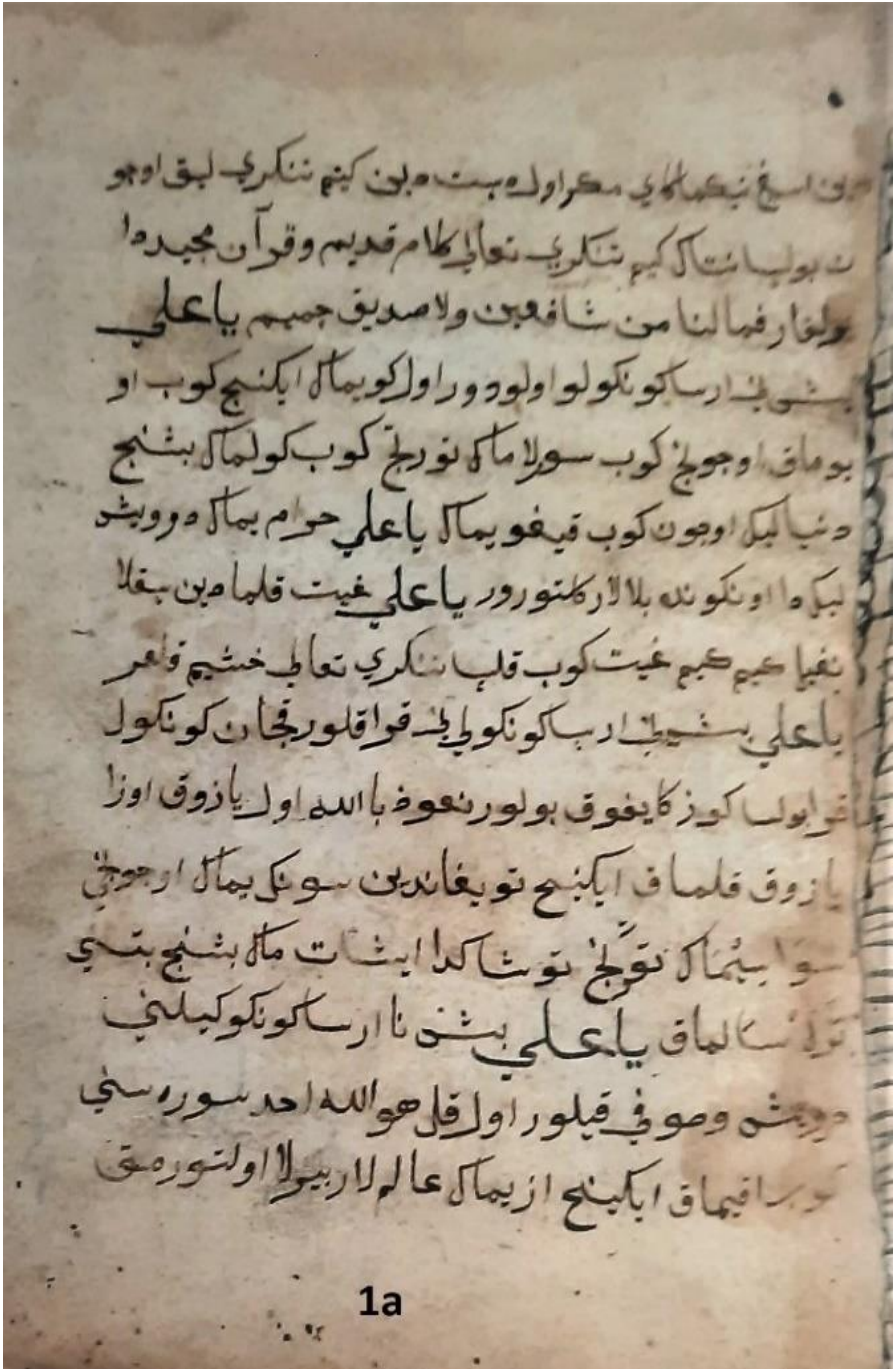 اسيغ تيكماكاي مكر اول دوست دين كيم تنكري ليق اوجو
ن بولسا نتاك كيم تنكري تعالي كلام قديم وقرآن مجيد دا
يولغار فمالنا من شافعين ولا صديق حميم يا علي
بش ني ارسا كونكولو اولدورور اول كوب يماك ايكنج كوب او
يوماق اوجونج كوب سوزلاماك تورتنج كوب كولماك بشنج
دنياليك اوجون كوب قيغو يماك يا علي حرام يماك درويش
ليك دا اونكونده بلالار كلتورور يا علي غيبت قلمادين سقلا
نغيل كيم كيم غيبت كوب قلسا تنكري تعالي خشيم قاهر
يا علي بش ني ارسا كونكولي ني قرا قلور قجان كونكول
قرا بولسا كوز كا يغوق بولور نعوذ با الله اول يازوق اوزا
يازوق قلماق ايكنج تويغاندين سونك يماك اوجونج
تورتنج توشاكدا ايشات ماك بشنج بتني
سالماق يا علي بش نا ارسا كونكوكيلني
درويش وصوفي قيلور اول قل هو الله احد سوره سني
كوب اقيماق ايكينج از يماك عالم لار بيرلا اولتورمق
1a